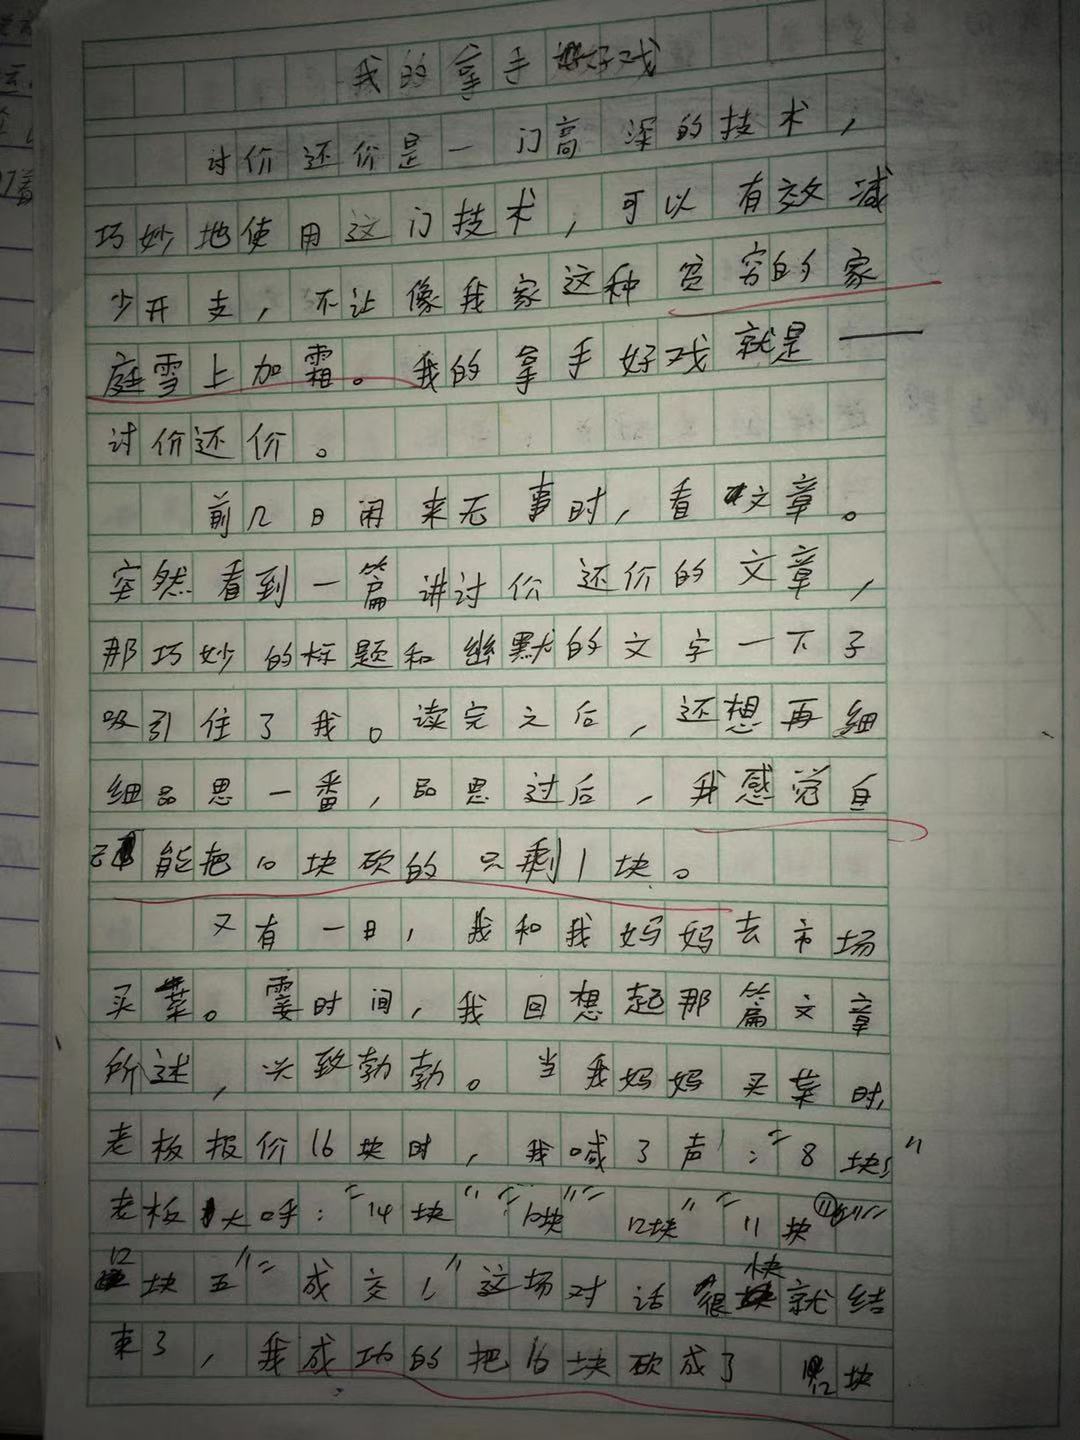 我的拿手好戏
讨价还价是一门高深的技术，
巧妙地使用这门技术，可以有效减
少开支，不让像我家这种贫穷的家
庭雪上加霜。我的拿手好戏就是——
讨价还价。
前几日闲来无事时，看文章。
突然看到一篇讲讨价还价的文章，
那巧妙的标题和幽默的文字一下子
吸引住了我。读完之后，还想再细
细品思一番，品思过后，我感觉自
己能把10块砍的只剩1块。
又有一日，我和我妈妈去市场
买菜。霎时间，我回想起那篇文章
所述，兴致勃勃。当我妈妈买菜时，
老板报价16块时，我喊了声："8块"
老板大呼："14块""10块""12块""11块"
"12块五""成交！"这场对话很快就结
束了，我成功的把16块砍成了12块